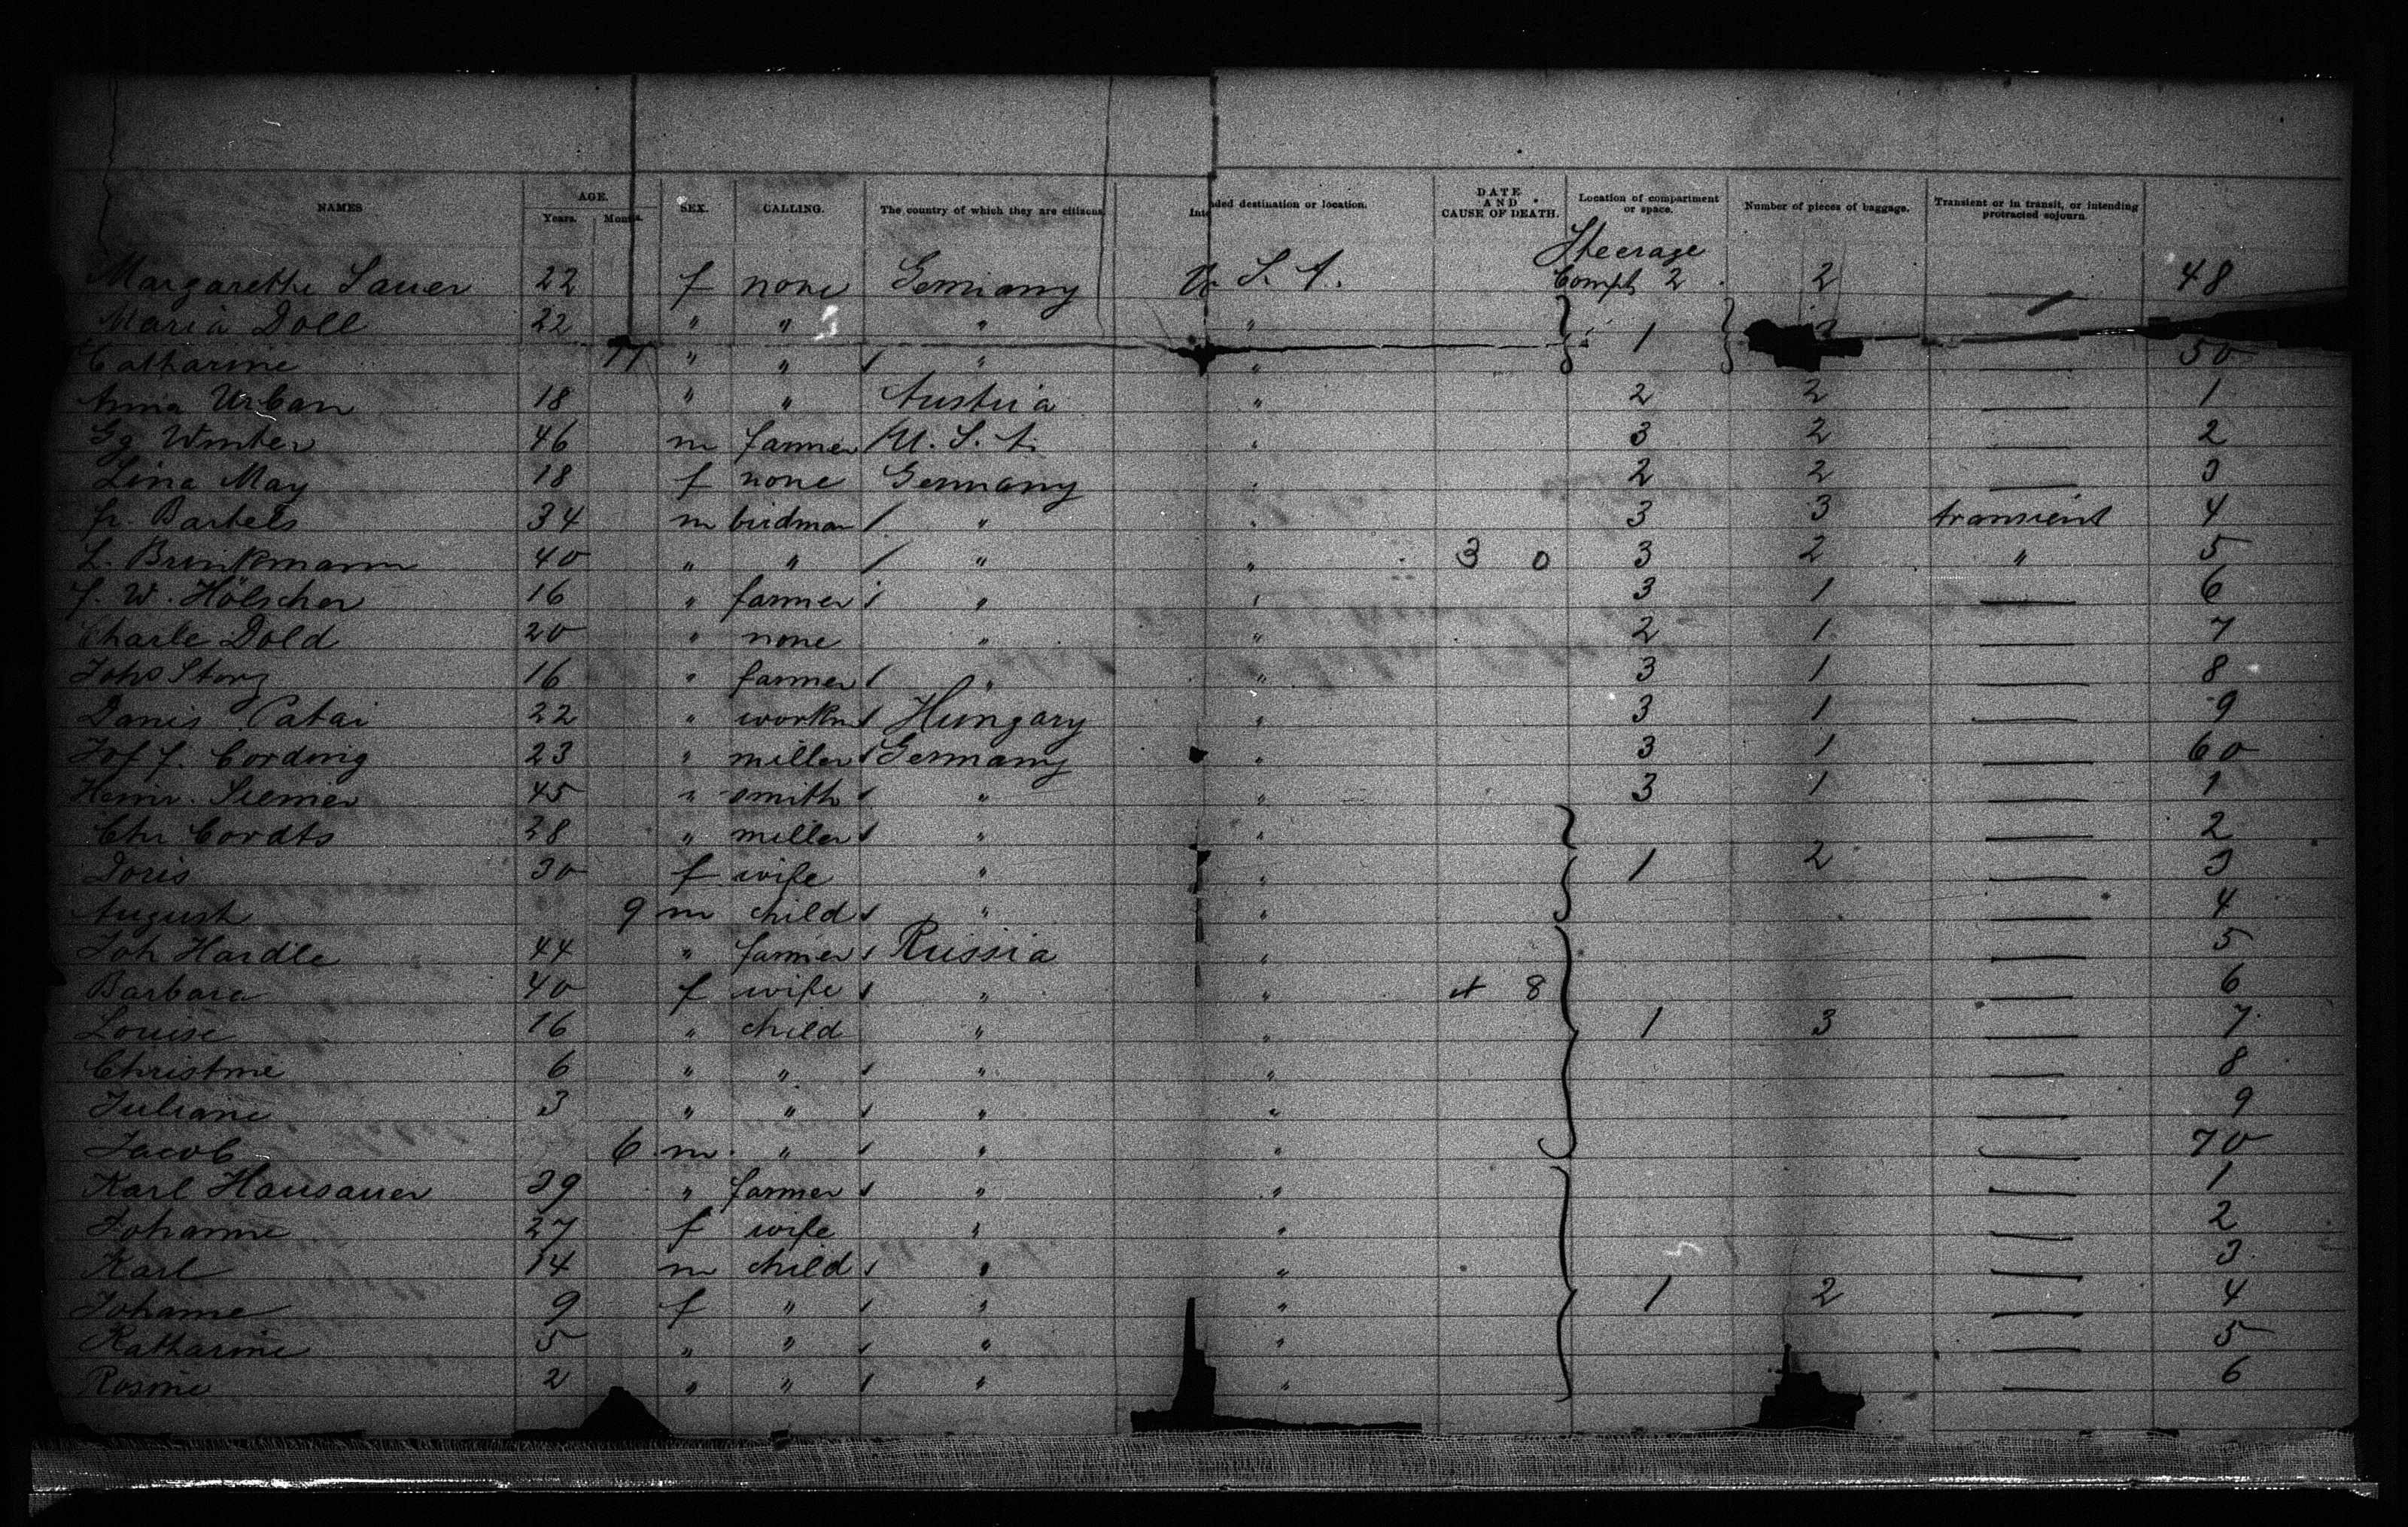 NAMES AGE. Years. Months. SEX. CALLING. The country of which they are citizens. Intended destination or location. DATE AND CAUSE OF DEATH. Location of compartment or space. Number of pieces of baggage. Transient or in transit, or intending protracted sojourn.
Steerage
Margarethe Sauer 22 f none Germany U. S. A. Compt 2 2 — 48
Maria Doll 22 " " " " 1 —
Catharine 11 " " " " — 50
Anna Urban 18 " " Austria " 2 2 — 1
Gg Winter 46 m farmer U. S. A. " 3 2 — 2
Lina May 18 f none Germany " 2 2 — 3
fr. Bartels 34 m birdman " " 3 3 transient 4
L. Brinkmann 40 " " " " 3 0 3 2 " 5
f. W. Hölscher 16 " farmer " " 3 1 — 6
Charle Dold 20 " none " " 2 1 — 7
Johs Storz 16 " farmer " " 3 1 — 8
Danis Catai 22 " workm Hungary " 3 1 — 9
Jos f. Cording 23 " miller Germany " 3 1 — 60
Heinr. Siemer 45 " smith " " 3 1 — 1
Chr. Cordts 28 " miller " " — 2
Doris 30 f wife " " 1 2 — 3
August 9 m child " " — 4
Joh Hardle 44 " farmer Russia " — 5
Barbara 40 f wife " " 8 — 6
Louise 16 " child " " 1 3 — 7
Christine 6 " " " " — 8
Juliane 3 " " " " — 9
Jacob 6 m " " " — 70
Karl Hausauer 39 " farmer " " — 1
Johanne 27 f wife " " — 2
Karl 14 m child " " — 3
Johanne 9 f " " " 1 2 — 4
Katharine 5 " " " " — 5
Rosine 2 " " " " — 6